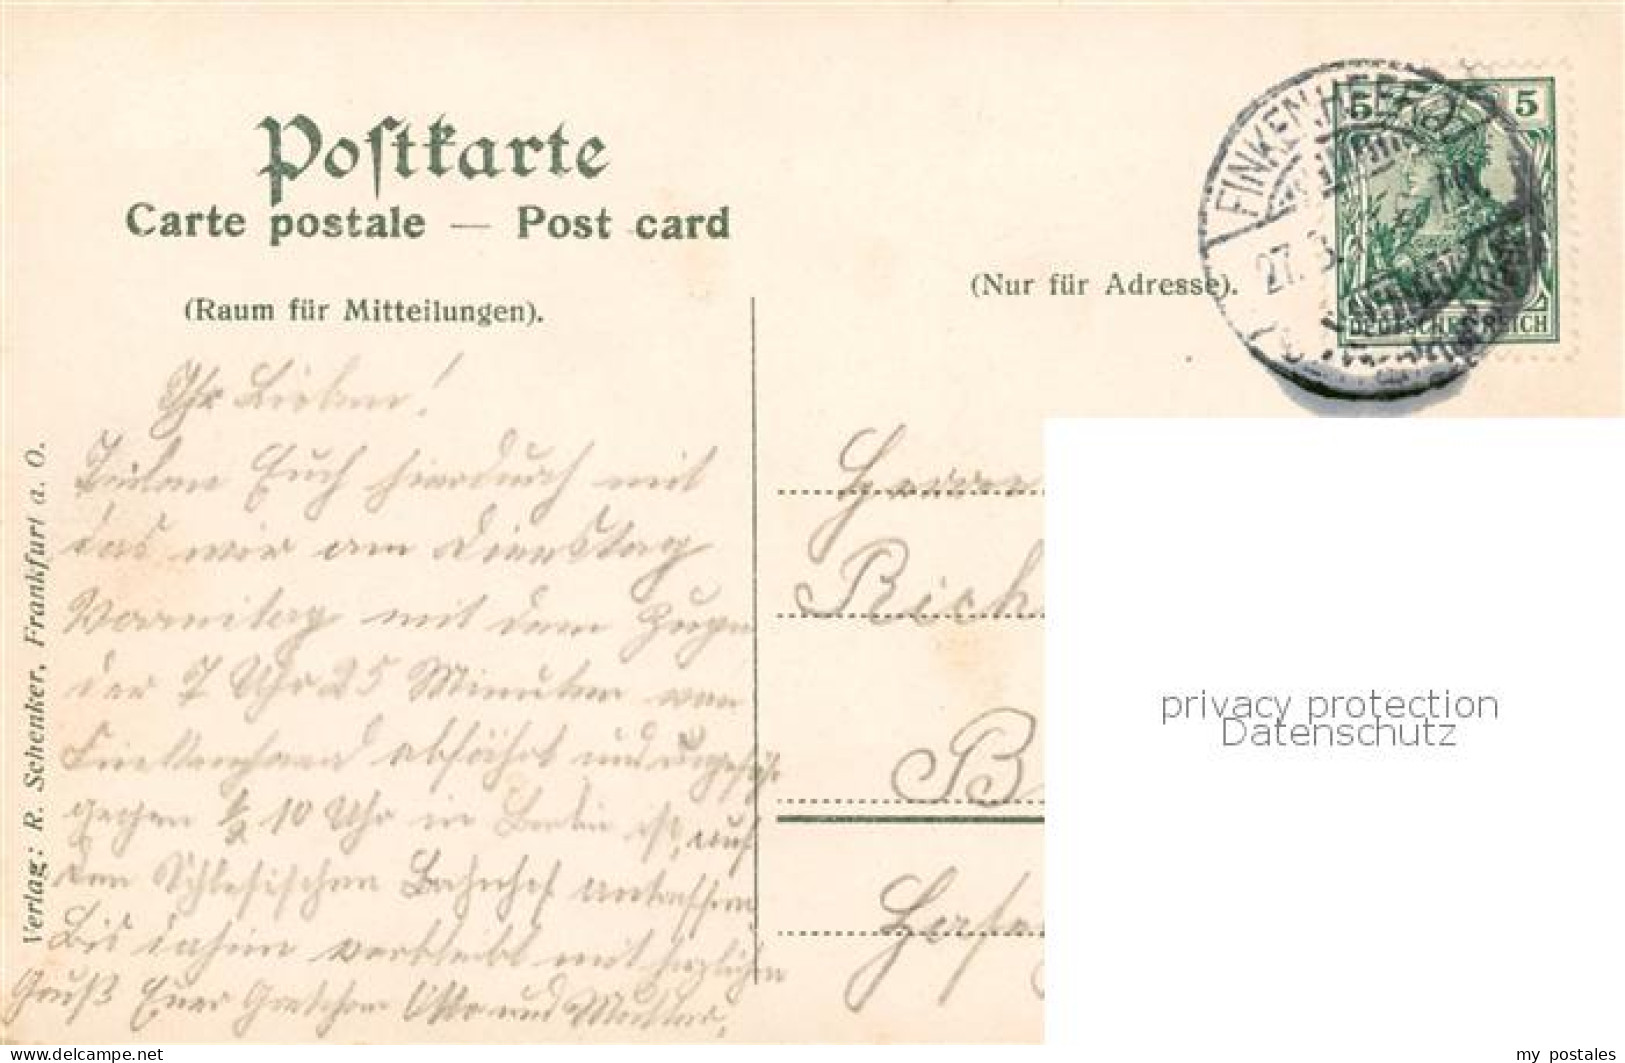 Postkarte
Carte postale — Post card
(Raum für Mitteilungen).
(Nur für Adresse).
FINKENHEERD
27. 3.
5 5
DEUTSCHES REICH
Ihr Lieben!
Teilen Euch hierdurch mit
das wir am Dienstag
Vormitag mit dem Zuge
der 7 Uhr 25 Minuten von
Finkenheerd abfährt und ungefähr
gegen 1/2 10 Uhr in Berlin ist, auf
den Schlesischen Bahnhof eintreffen
Bis dahin verbleibt mit herzlichen
Gruß Euer Gretchen Otto und Mutter.
Herrn
Rich
B
Verlag: R. Schenker, Frankfurt a. O.
privacy protection
Datenschutz
www.delcampe.net
my_postales